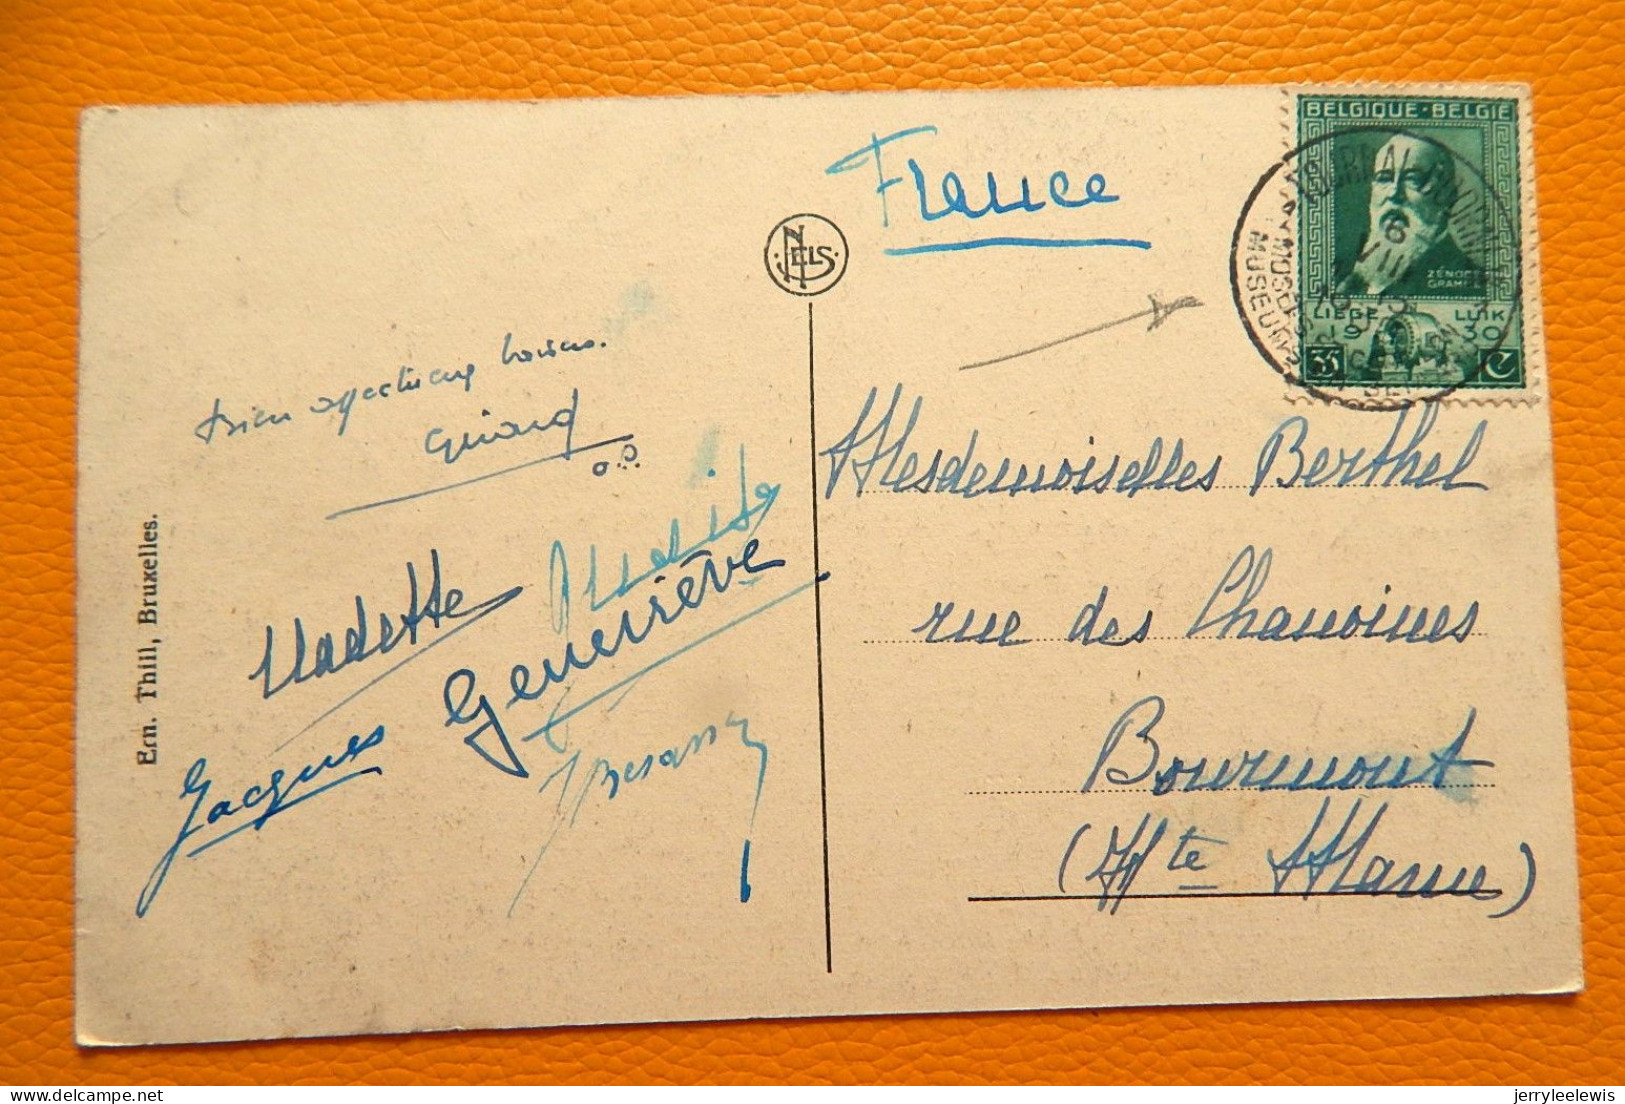 France
BELGIQUE - BELGIE
6
VIII
ZÉNOBE
GRAMME
LIEGE LUIK
1930
35 C
MUSEUM
NELS
bien affectueux baisers.
Girard
o.p.
Madette
Geneviève
Jacques
Ern. Thill, Bruxelles.
Mesdemoiselles Berthel
rue des Chanoines
Bourmont
(Hte Marne)
jerryleelewis